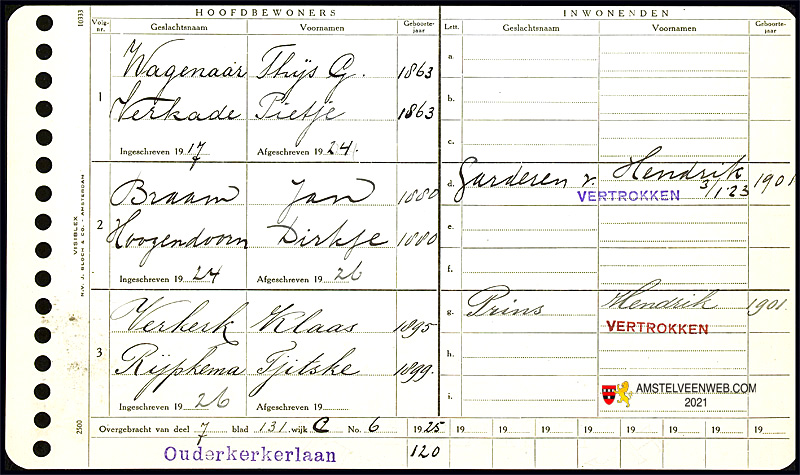 HOOFDBEWONERS INWONENDEN
Volg-nr. Geslachtsnaam Voornamen Geboorte-jaar Lett. Geslachtsnaam Voornamen Geboorte-jaar
10333
1
Wagenaar Thijs G. 1863
Verkade Pietje 1863
Ingeschreven 1917 Afgeschreven 1924.
7
a.
b.
c.
2
Braam Jan 1880
Hoogendoorn Dirkje 1880
Ingeschreven 1924 Afgeschreven 1926
d. Garderen v. Hendrik 1901
VERTROKKEN 3/1 '23
e.
f.
3
Verkerk Klaas 1895
Rijpkema Tjitske 1899.
Ingeschreven 1926 Afgeschreven 19
g. Prins Hendrik 1901.
VERTROKKEN
h.
i.
VISIBLEX
N.V. J. BLOCH & CO. - AMSTERDAM
2500
AMSTELVEENWEB.COM
2021
Overgebracht van deel 7 blad 131 wijk C No. 6 1925 19 19 19 19 19 19 19 19
7
Ouderkerkerlaan 120